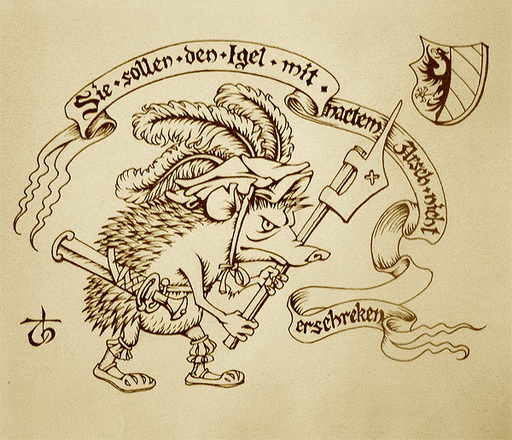 Sie · sollen · den · Igel · mit ·
nactem
Arsch · nicht
erschreken